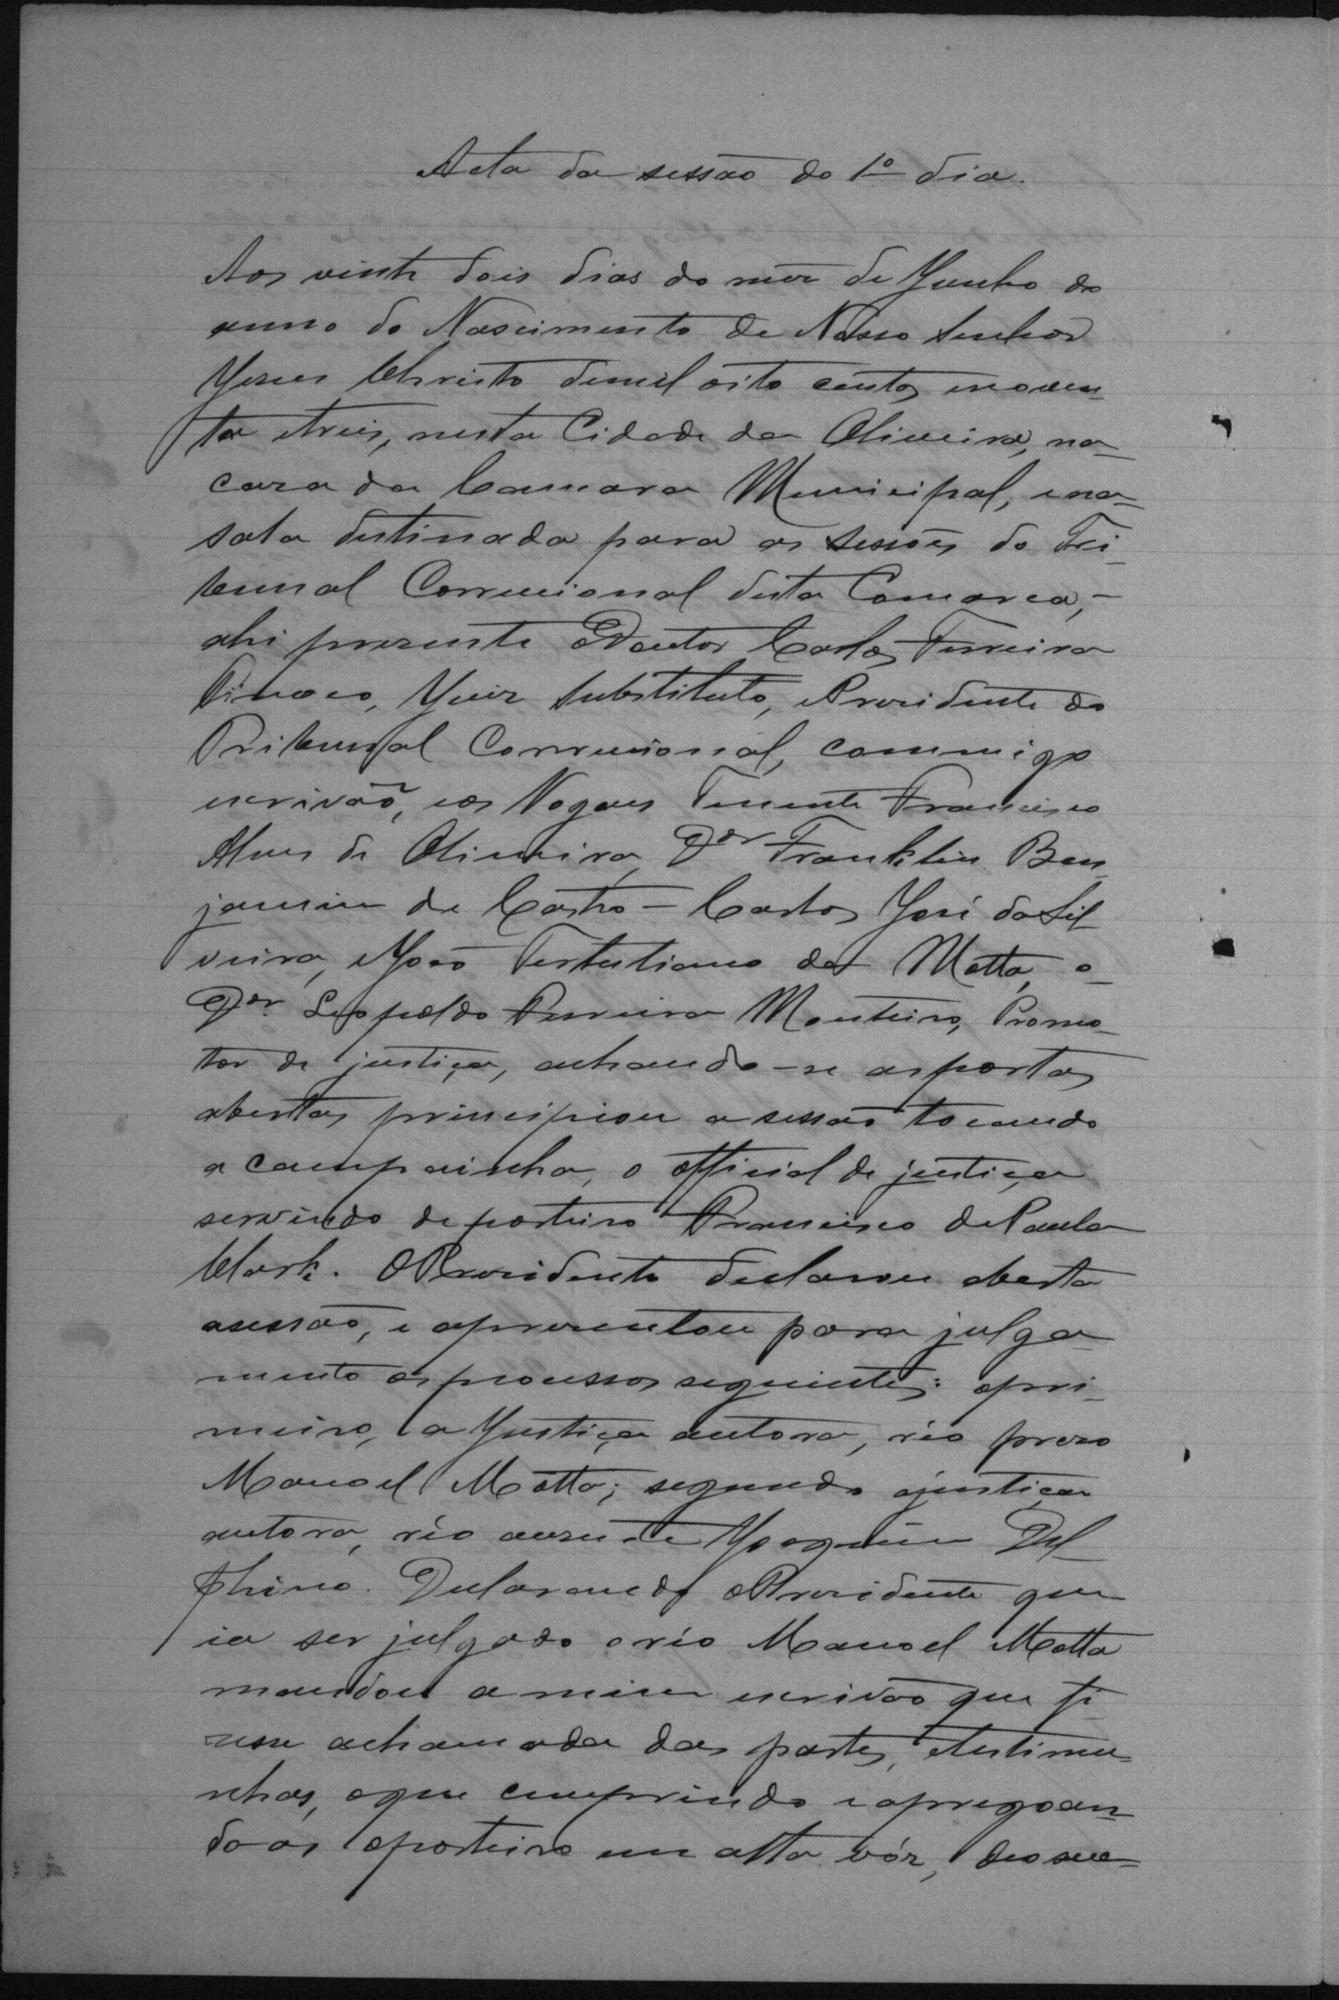 Acta da sessão do 1º dia.
Aos vinte dois dias do mez de Junho do
anno do Nascimento de Nosso Senhor
Jesus Christo de mil oito centos e noven-
ta e treis, nesta Cidade da Oliveira, na
caza da Camara Municipal, e na
sala destinada para as sessões do Tri-
bunal Correccional desta Comarca,-
ahi prezente o Doutor Carlos Ferreira
Tinoco, Juiz Substituto, e Prezidente do
Tribunal Correccional, commigo
escrivão, e os Vogaes Tenente Francisco
Alves de Oliveira, Dor Franklin Ben
jamin de Castro - Carlos José da Sil
veira, e João Tertuliano da Motta, o
Dor. Leopoldo Ferreira Monteiro, Promo-
tor de justiça, achando-se as portas
abertas principiou a sessão tocando
a campainha, o official de justiça
servindo de porteiro Francisco de Paula
Clark. O Prezidente declarou aberta
a sessão, e aprezentou para julga-
mento os processos seguintes: o pri-
meiro, a Justiça autora, réo prezo
Manoel Motta; segundo a justiça
autora, réo auzente Joaquim Del-
phino. Declarando o Prezidente que
ia ser julgado o réo Manoel Motta
mandou a mim escrivão que fi-
zesse a chamada das partes, e testimu-
nhas, o que cumprindo e apregoan-
do as o porteiro em alta vóz,